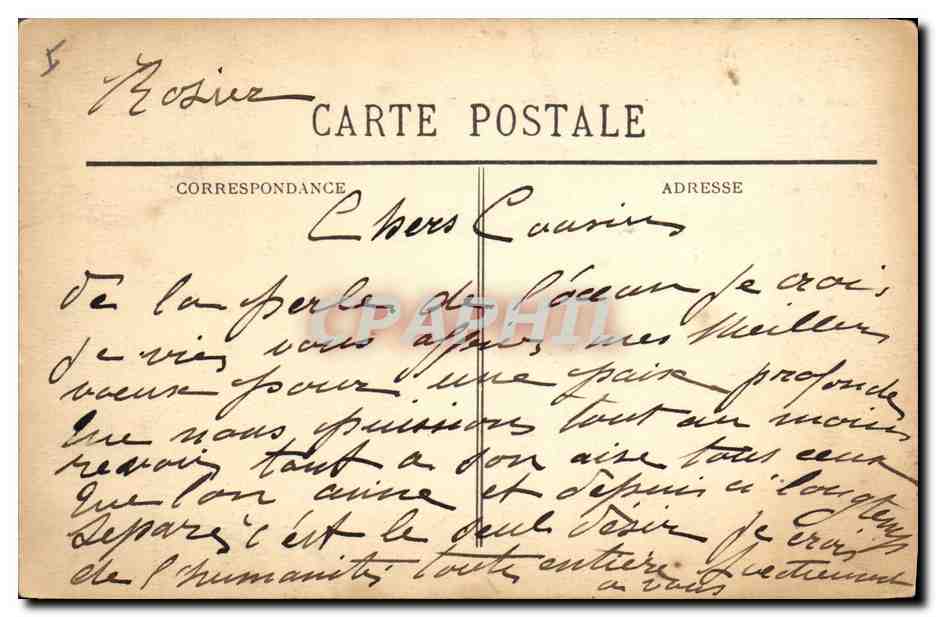 5
Rosier
CARTE POSTALE
CORRESPONDANCE
ADRESSE
Chers Cousins
de la perle de l'océan je crois
je viens vous offrir mes Meilleurs
voeux pour une paix profonde
que nous puissions tout au moins
revoir tout a son aise tous ceux
que l'on aime et depuis si longtemps
separés c'est le seul désir je crois
de l'humanité toute entière
a vous
CPAPHIL